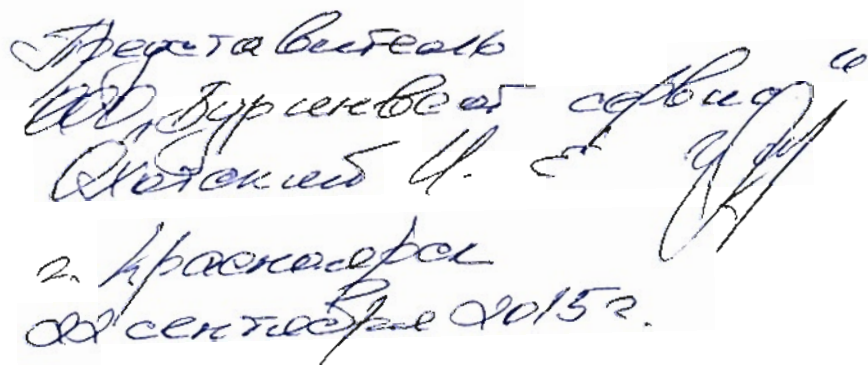 Представитель
ООО "Буринвест сервис"
Охотский И. Е.
г. Красноярск
22 сентября 2015 г.